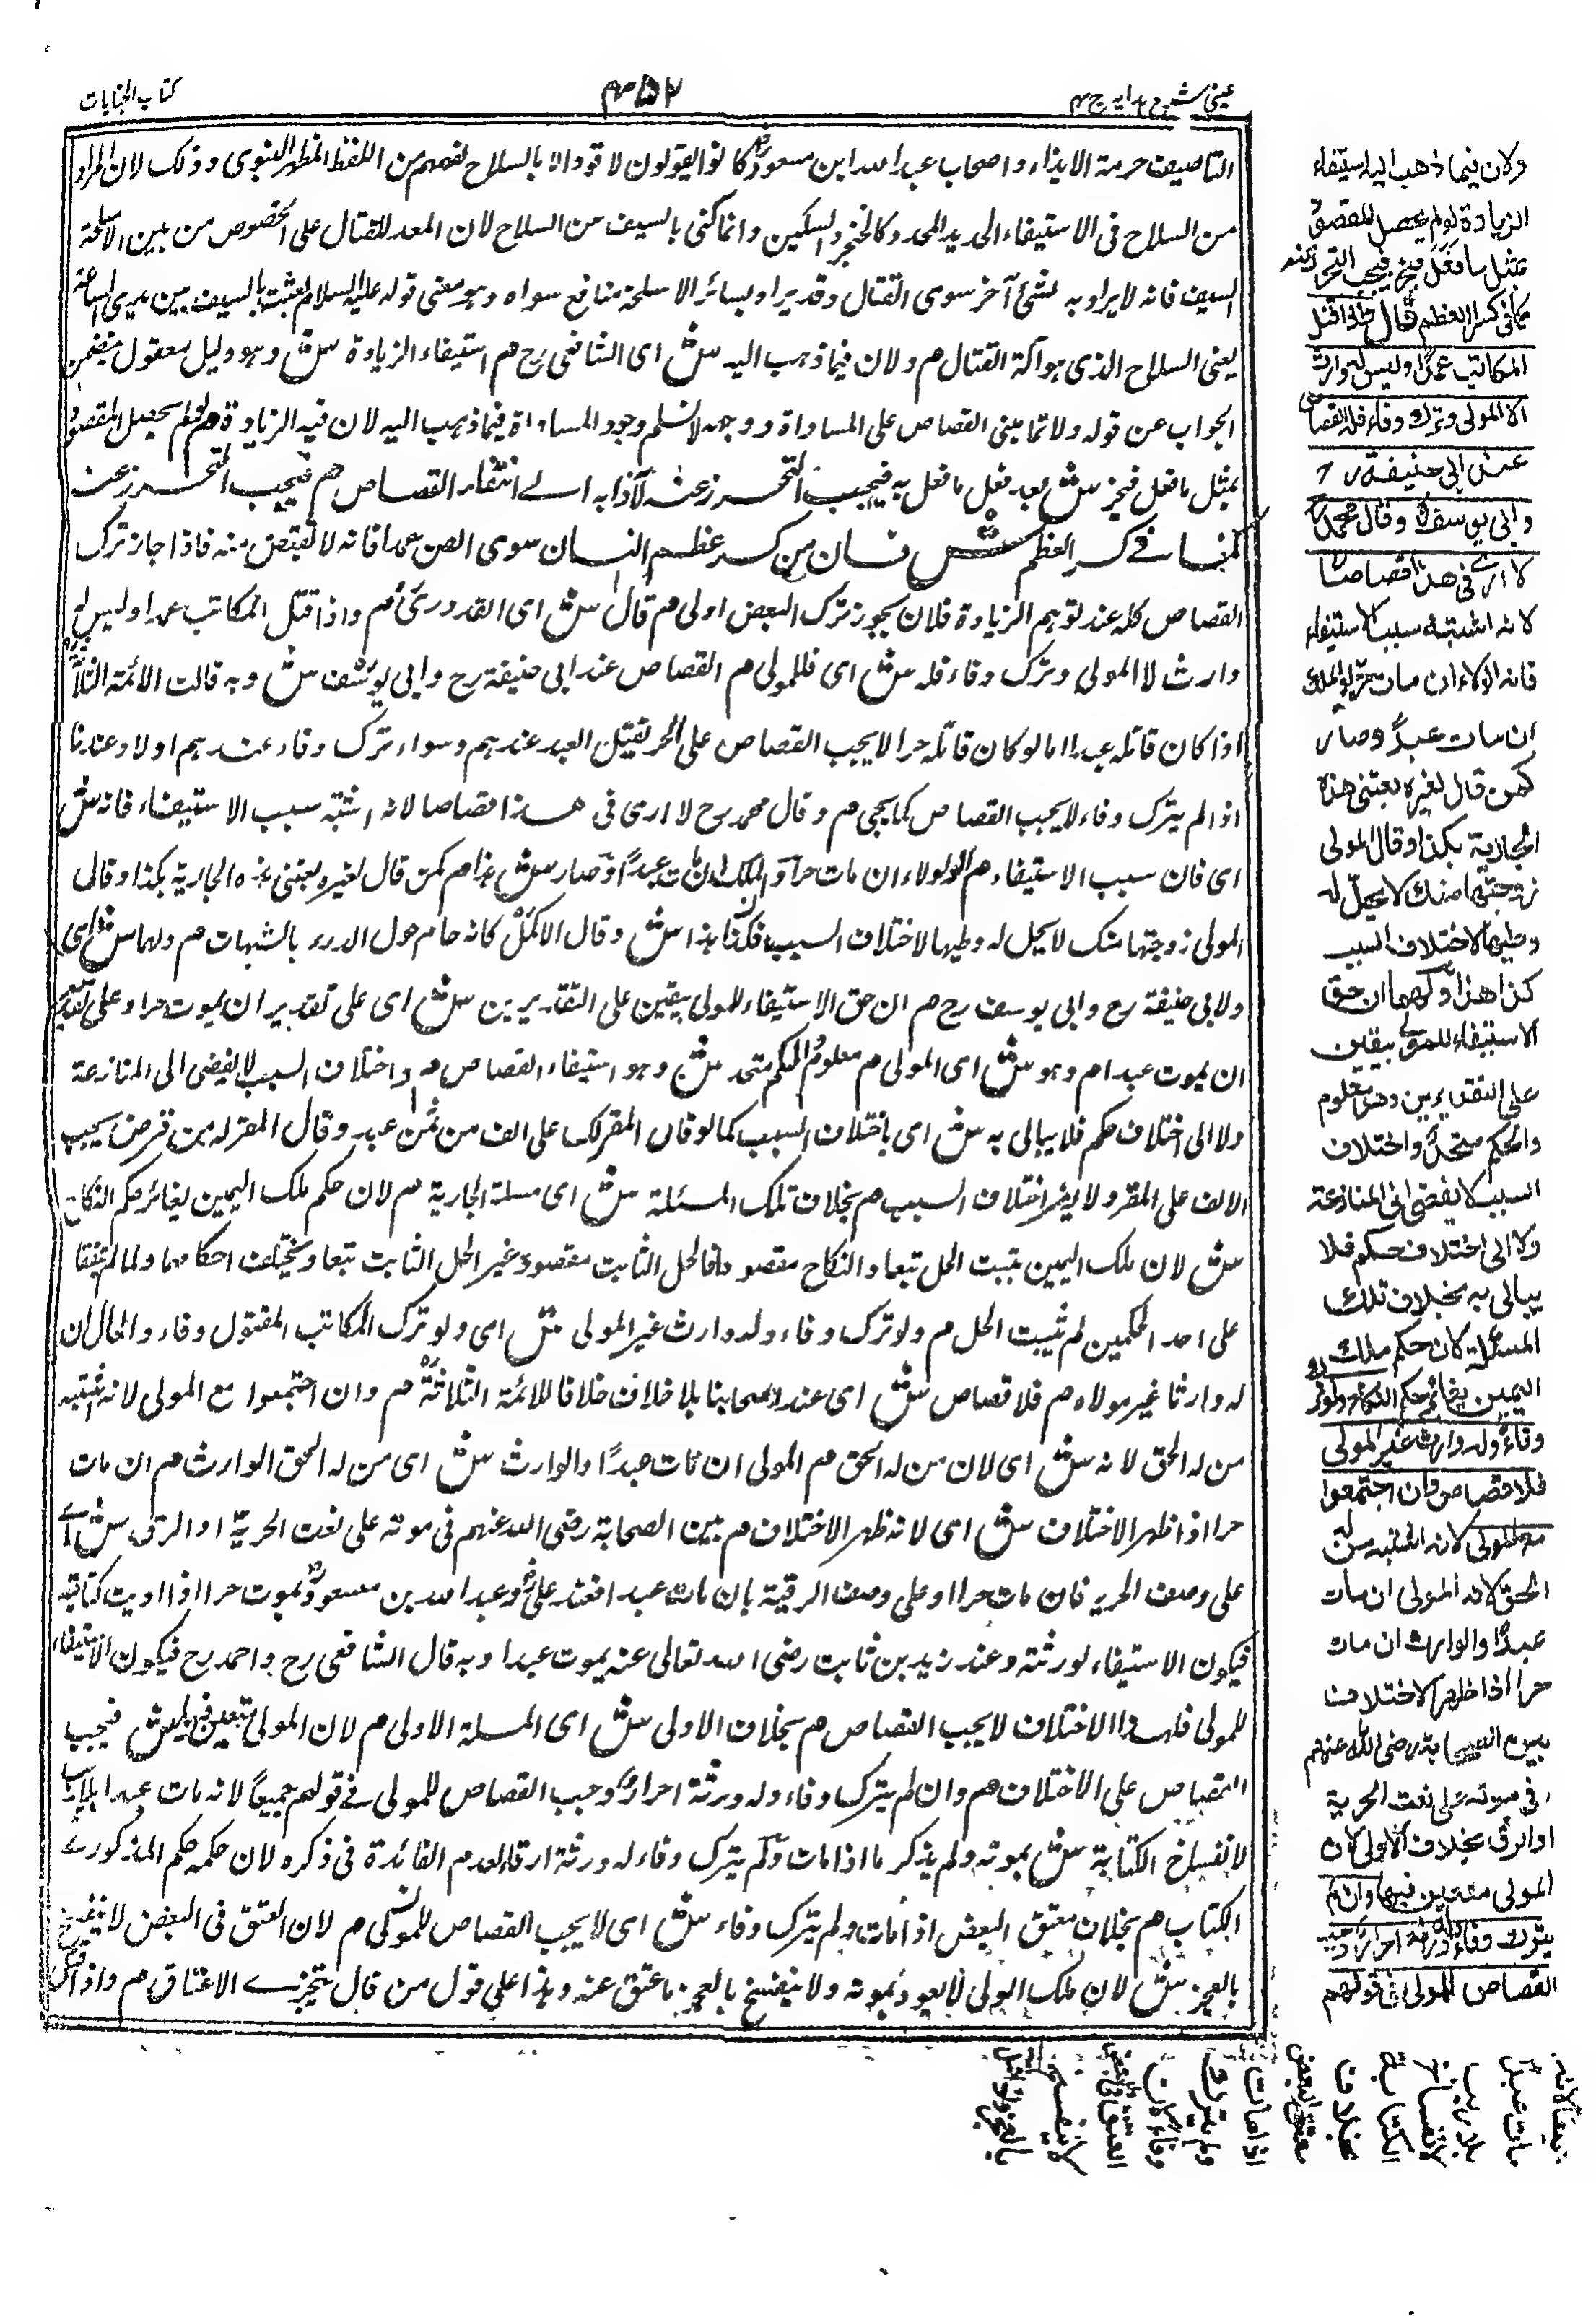 عینی شرح ہدایہ ج ۴
۴۵۲
کتاب الجنایات
التاصیص حرمۃ الایذاء واصحاب عبد اللہ ابن مسعودؓ کانوا یقولون لا قود الا بالسلاح لفہمہم من اللفظ المطہر النبوی وذلک لان المراد
من السلاح فی الاستیفاء الحدید المحدد کالخنجر والسکین وانما کنی بالسیف من السلاح لان المعد للقتال علی الخصوص من بین الاسلحۃ
السیف فانہ لا یراد بہ لشئ آخر سوی القتال وقد یراد بسائر الاسلحۃ منافع سواہ وہو معنی قولہ علیہ السلام بعثت بالسیف بین یدی الساعۃ
یعنی السلاح الذی ہو آلۃ القتال م ولان فیما ذہب الیہ ش ای الشافعی رح م استیفاء الزیادۃ ش وہو دلیل معقول یتضمن
الجواب عن قولہ ولانا مبنی القصاص علی المساواۃ ووجہہ لا نسلم وجود المساواۃ فیما ذہب الیہ لان فیہ الزیادۃ م لو لم یحصل المقصود
بمثل ما فعل فیحز ش بعد فعل ما فعل بہ فیجب التحرز عنہ لآذابہ اے انتفاء القصاص م فیجب التحرز عنہ
کما فی کسر العظم ش فان من کسر عظم انسان سوی السن عمدا فانہ لا یقتص منہ فاذا جاز ترک
القصاص کلہ عند توہم الزیادۃ فلان یجوز ترک البعض اولی م قال ش ای القدوری م واذا قتل المکاتب عمدا ولیس لہ
وارث الا المولی وترک وفاء فلہ ش ای فللمولی م القصاص عند ابی حنیفۃ رح وابی یوسف ش وبہ قالت الائمۃ الثلاثۃ
اذا کان قاتلہ عبدا اما لو کان قاتلہ حرا لا یجب القصاص علی الحر بقتل العبد عندہم وسواء ترک وفاء عندہم او لا وعندنا
اذا لم یترک وفاء لا یجب القصاص کما یجی م وقال محمد رح لا اری فی ھذا قصاصا لانہ اشتبہ سبب الاستیفاء فانہ ش
ای فان سبب الاستیفاء م الولاء ان مات حرا والملک ان مات عبدا وصار ش ہذا م کمن قال لغیرہ بعتنی ہذہ الجاریۃ بکذا وقال
المولی زوجتہا منک لا یحل لہ وطیہا لاختلاف السبب فکذا ہذا ش وقال الاکمل کانہ حام حول الدرء بالشبہات م ولہما ش ای
ولابی حنیفۃ رح وابی یوسف رح م ان حق الاستیفاء للمولی بیقین علی التقدیرین ش ای علی تقدیر ان یموت حرا وعلی تقدیر
ان یموت عبدا م وہو ش ای المولی م معلوم والحکم متحد ش وہو استیفاء القصاص م واختلاف السبب لا یفضی الی المنازعۃ
ولا الی اختلاف حکم فلا یبالی بہ ش ای باختلاف السبب کما لو قال المقر لک علی الف من ثمن عبد وقال المقر لہ من قرض یجب
الالف علی المقر ولا یضر اختلاف السبب م بخلاف تلک المسئلۃ ش ای مسئلۃ الجاریۃ م لان حکم ملک الیمین یغائر حکم النکاح
ش لان ملک الیمین یثبت الحل تبعا والنکاح مقصودا فالحل الثابت مقصودا غیر الحل الثابت تبعا ویختلف احکامہما ولما لم یتفقا
علی احد الحکمین لم یثبت الحل م ولو ترک وفاء ولہ وارث غیر المولی ش ای ولو ترک المکاتب المقتول وفاء والحال ان
لہ وارثا غیر مولاہ م فلا قصاص ش ای عند اصحابنا بلا خلاف خلافا للائمۃ الثلاثۃ م وان اجتمعوا مع المولی لانہ اشتبہ
من لہ الحق لانہ ش ای لان من لہ الحق م المولی ان مات عبدًا والوارث ش ای من لہ الحق الوارث م ان مات
حرا اذ اظہر الاختلاف ش ای لانہ ظہر الاختلاف م بین الصحابۃ رضی اللہ عنہم فی موتہ علی نعت الحریۃ او الرق ش اے
علی وصف الحریۃ فان مات حرا او علی وصف الرقیۃ بان مات عبدا فعند علیؓ وعبد اللہ بن مسعودؓ یموت حرا اذا ادیت کتابتہ
فیکون الاستیفاء لورثتہ وعند زید بن ثابت رضی اللہ تعالی عنہ یموت عبدا وبہ قال الشافعی رح واحمد رح فیکون الاستیفاء
للمولی فلہذا الاختلاف لا یجب القصاص م بخلاف الاولی ش ای المسئلۃ الاولی م لان المولی متعین فیہا ش فیجب
القصاص علی الاختلاف م وان لم یترک وفاء ولہ ورثۃ احرار وجب القصاص للمولی فے قولہم جمیعًا لانہ مات عبدا بلا ریب
لانفساخ الکتابۃ ش بموتہ ولم یذکر ما اذا مات ولم یترک وفاء لہ ورثۃ ارقاء لعدم الفائدۃ فی ذکرہ لان حکمہ حکم المذکور فے
الکتاب م بخلاف معتق البعض اذا مات ولم یترک وفاء ش ای لا یجب القصاص للمولی م لان العتق فی البعض لا ینفسخ
بالعجز ش لان ملک المولی لا یعود بموتہ ولا ینفسخ بالعجز ما عتق عنہ وہذا علی قول من قال بتجزے الاعتاق م واذا قتل
ولان فیما ذهب الیه استیفاء
الزیادة لو لم یحصل المقصود
بمثل ما فعل فیحز فیجب التحرز عنه
کما فی کسر العظم قال واذا قتل
المکاتب عمدًا ولیس له وارث
الا المولی وترک وفاء فله القصاص
عند ابی حنیفة ر
وابی یوسف وقال محمد
لا اری فی هذا قصاصًا
لانه اشتبه سبب الاستیفاء
فانه الولاء ان مات حرًا والملک
ان مات عبدًا وصار
کمن قال لغیره بعتنی هذه
الجاریة بکذا وقال المولی
زوجتها منک لا یحل له
وطیها لاختلاف السبب
کذا هذا ولهما ان حق
الاستیفاء للمولی بیقین
علی التقدیرین وهو معلوم
والحکم متحد واختلاف
السبب لا یفضی الی المنازعة
ولا الی اختلاف حکم فلا
یبالی به بخلاف تلک
المسئلة لان حکم ملک
الیمین یغائر حکم النکاح ولو ترک
وفاءً وله وارث غیر المولی
فلا قصاص وان اجتمعوا
مع المولی لانه اشتبه من له
الحق لانه المولی ان مات
عبدًا والوارث ان مات
حرا اذا ظهر الاختلاف
بین الصحابة رضی الله عنهم
فی موته علی نعت الحریة
او الرق بخلاف الاولی لان
المولی متعین فیها وان لم
یترک وفاءً وله ورثة احرار وجب
القصاص للمولی فی قولهم
جمیعًا لانه
مات عبدًا
بلا ریب
لانفساخ
الکتابة
بخلاف
معتق البعض
اذا مات
ولم یترک
وفاء لان
العتق فی البعض
لا ینفسخ
بالعجز واذا قتل